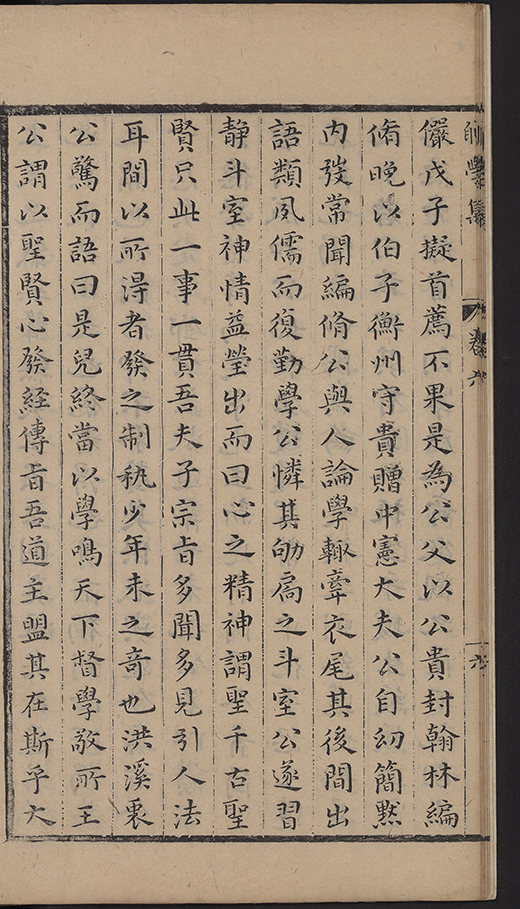 學集 卷六 六
儼戊子擬首薦不果是為公父以公貴封翰林編
脩晚以伯子衡州守貴贈中憲大夫公自幼簡黙
內發常聞編脩公與人論學輙牽衣尾其後間出
語類夙儒而復勤學公憐其劬扃之斗室公遂習
静斗室神情益瑩出而曰心之精神謂聖千古聖
賢只此一事一貫吾夫子宗旨多聞多見引人法
耳間以所得者發之制秇少年未之奇也洪溪衷
公驚而語曰是兒終當以學鳴天下督學敬所王
公謂以聖賢心發經傳旨吾道主盟其在斯乎大